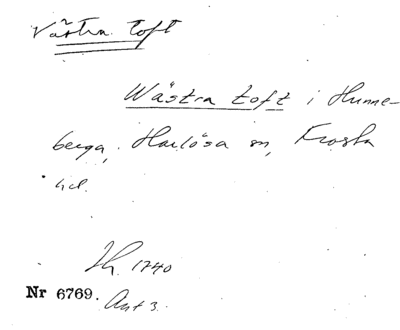 Västra toft
Wästra toft i Hunne-
berga, Harlösa sn, Frosta
hd.
Lh. 1740
Nr 6769. Akt 3.